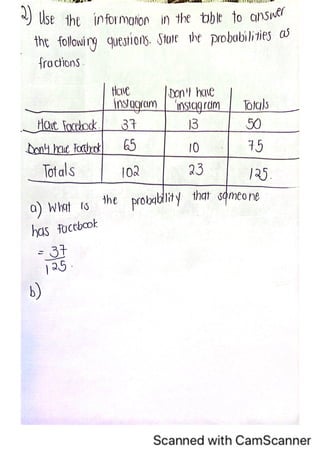 2) Use the information in the table to answer
the following questions. State the probabilities as
fractions.
Have Instagram | Don't have instagram | Totals
Have Facebook 37 13 50
Don't have Facebook 65 10 75
Totals 102 23 125
a) What is the probability that someone
has facebook
= 37
125.
b)
Scanned with CamScanner